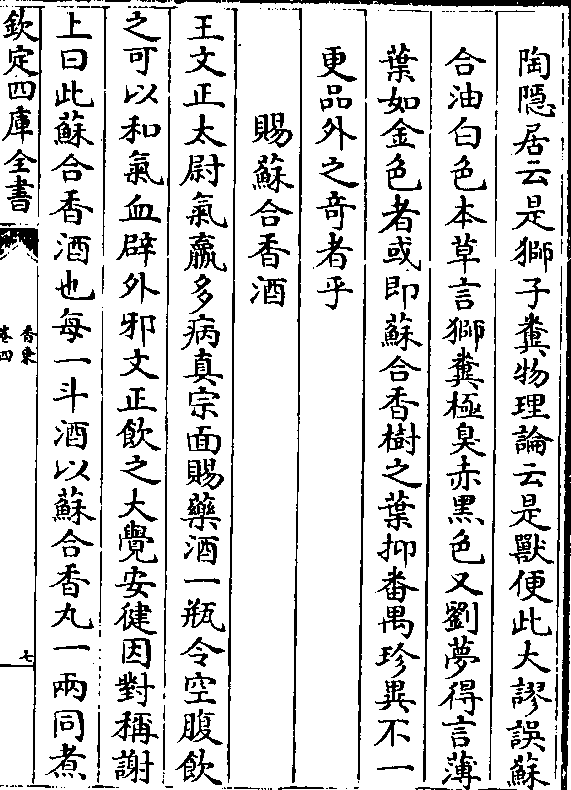 陶隱居云是獅子糞物理論云是獸便此大謬誤蘇
合油白色本草言獅糞極臭赤黑色又劉夢得言薄
葉如金色者或即蘇合香樹之葉抑番禺珍異不一
更品外之奇者乎
賜蘇合香酒
王文正太尉氣羸多病真宗面賜藥酒一瓶令空腹飲
之可以和氣血辟外邪文正飲之大覺安健因對稱謝
上曰此蘇合香酒也每一斗酒以蘇合香丸一兩同煮
欽定四庫全書
香乘
卷四
七